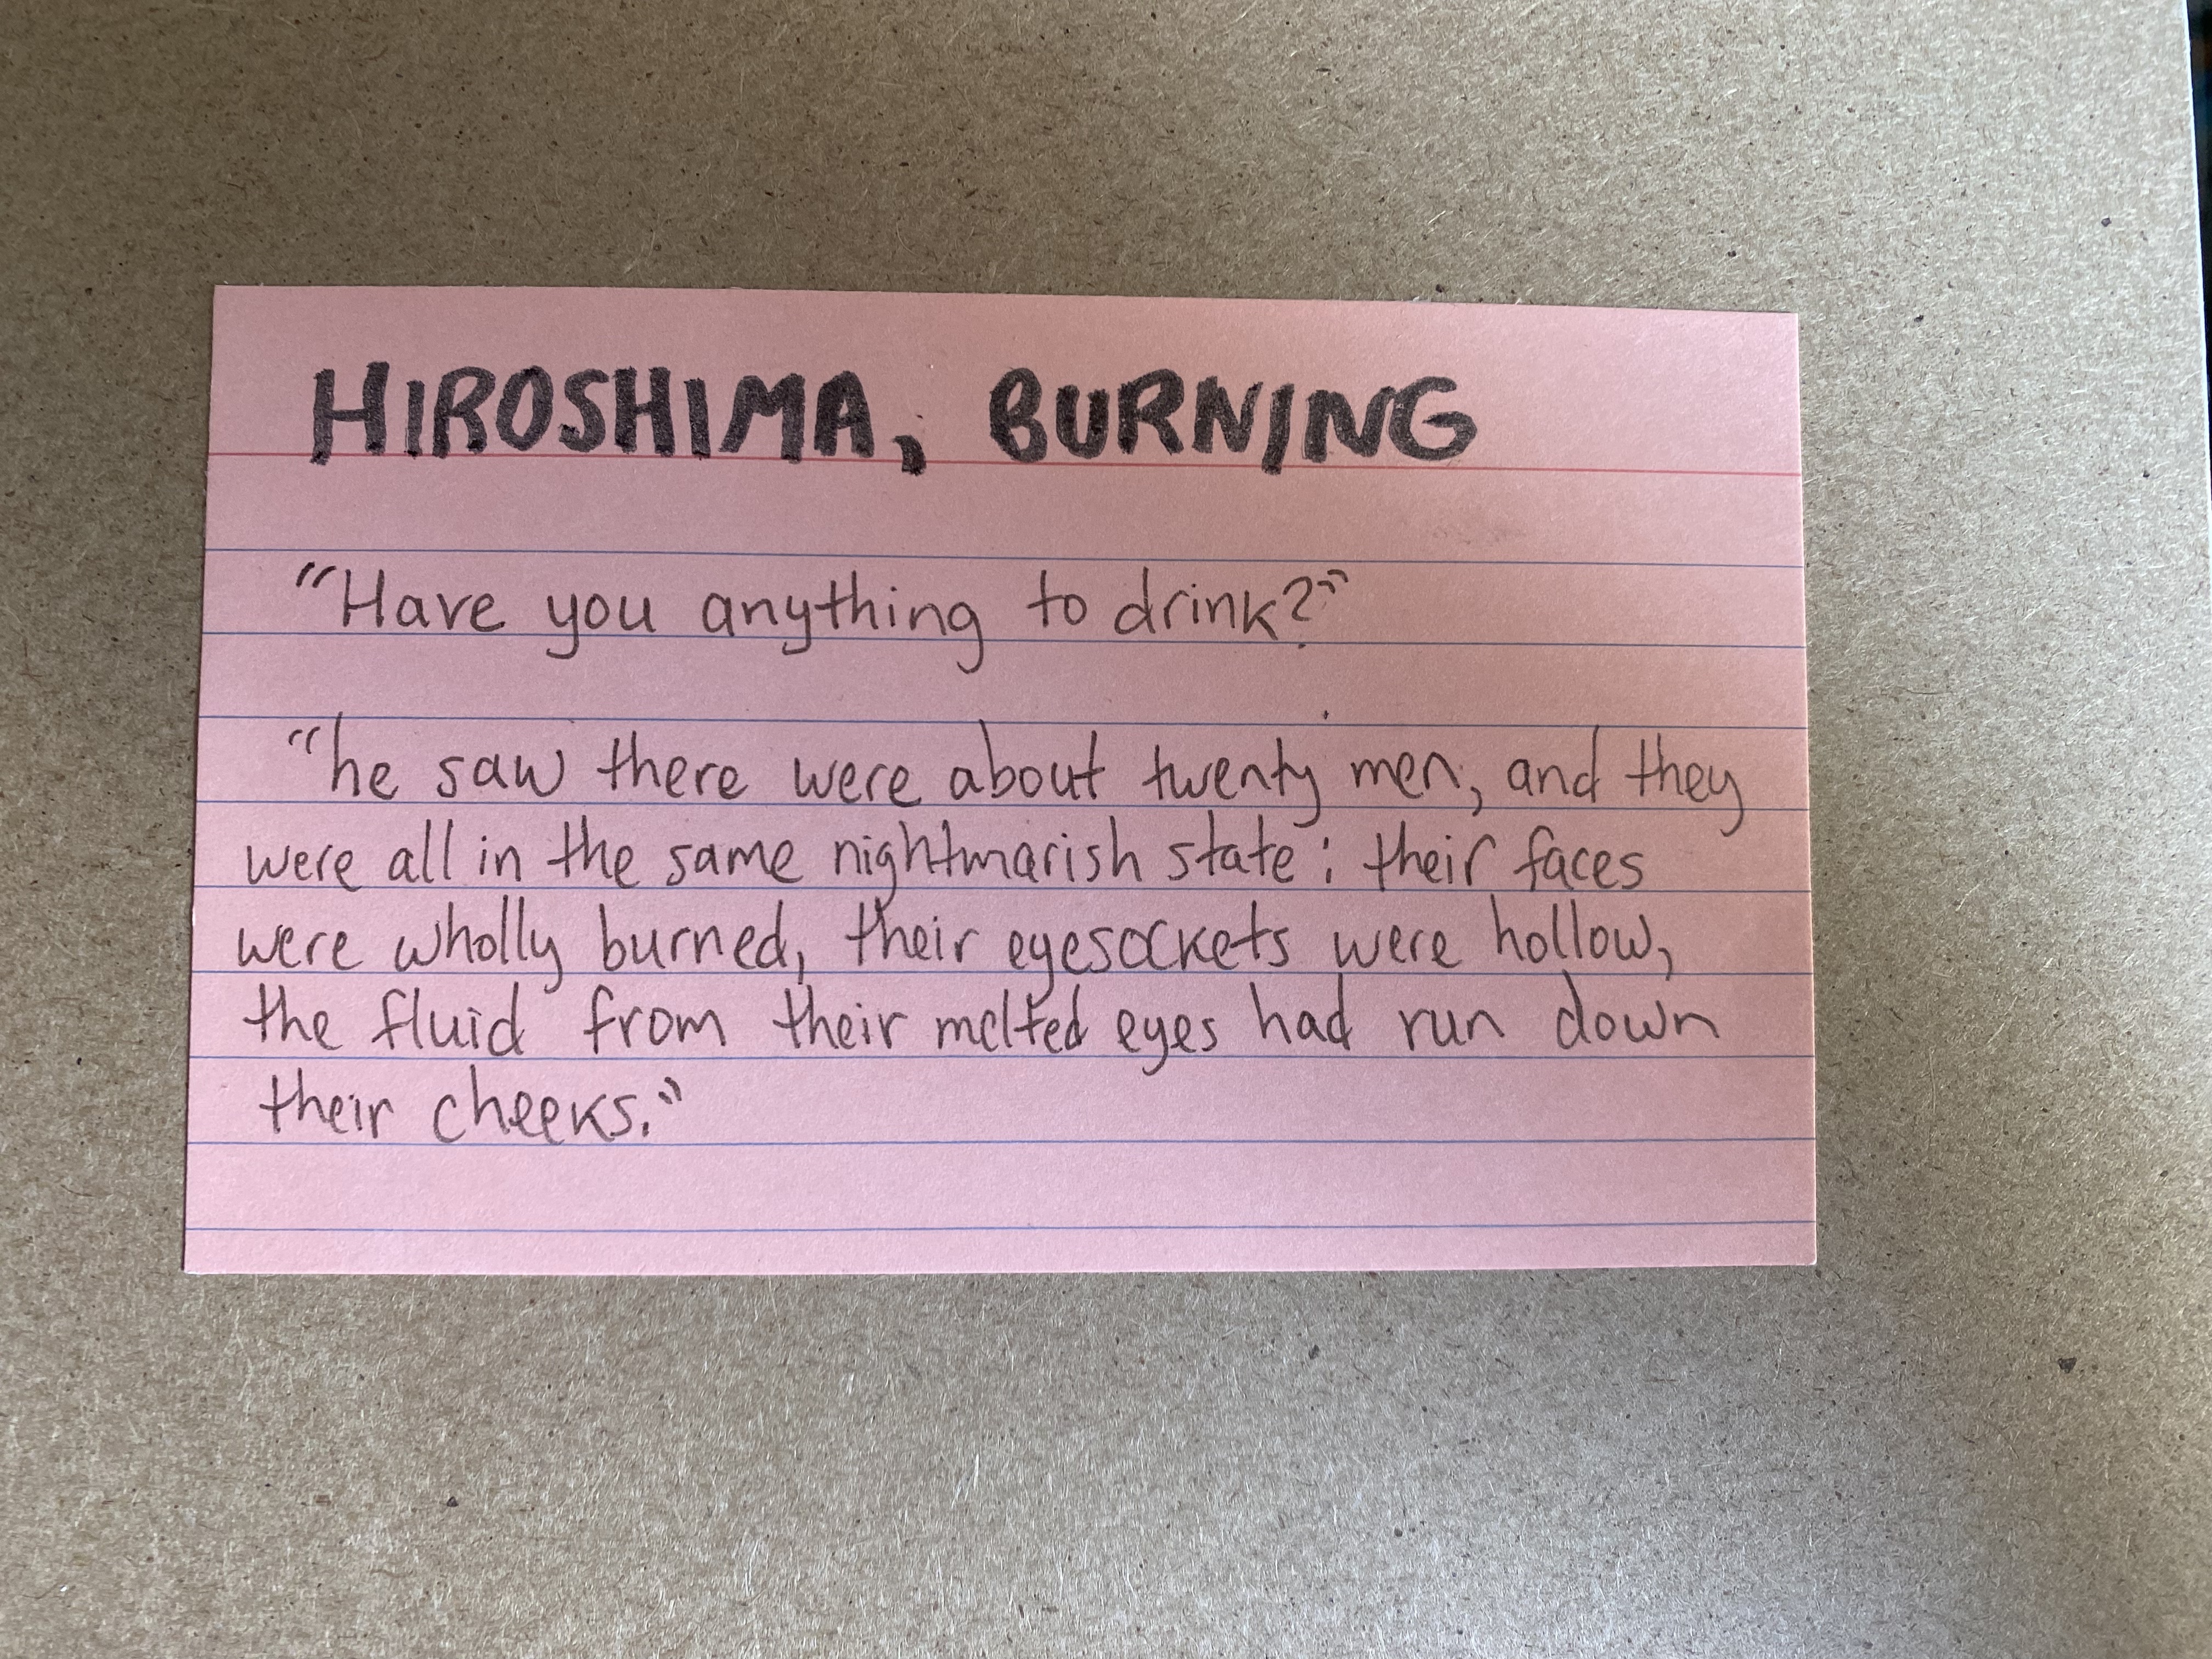 HIROSHIMA, BURNING
"Have you anything to drink?"
"he saw there were about twenty men, and they
were all in the same nightmarish state: their faces
were wholly burned, their eyesockets were hollow,
the fluid from their melted eyes had run down
their cheeks."